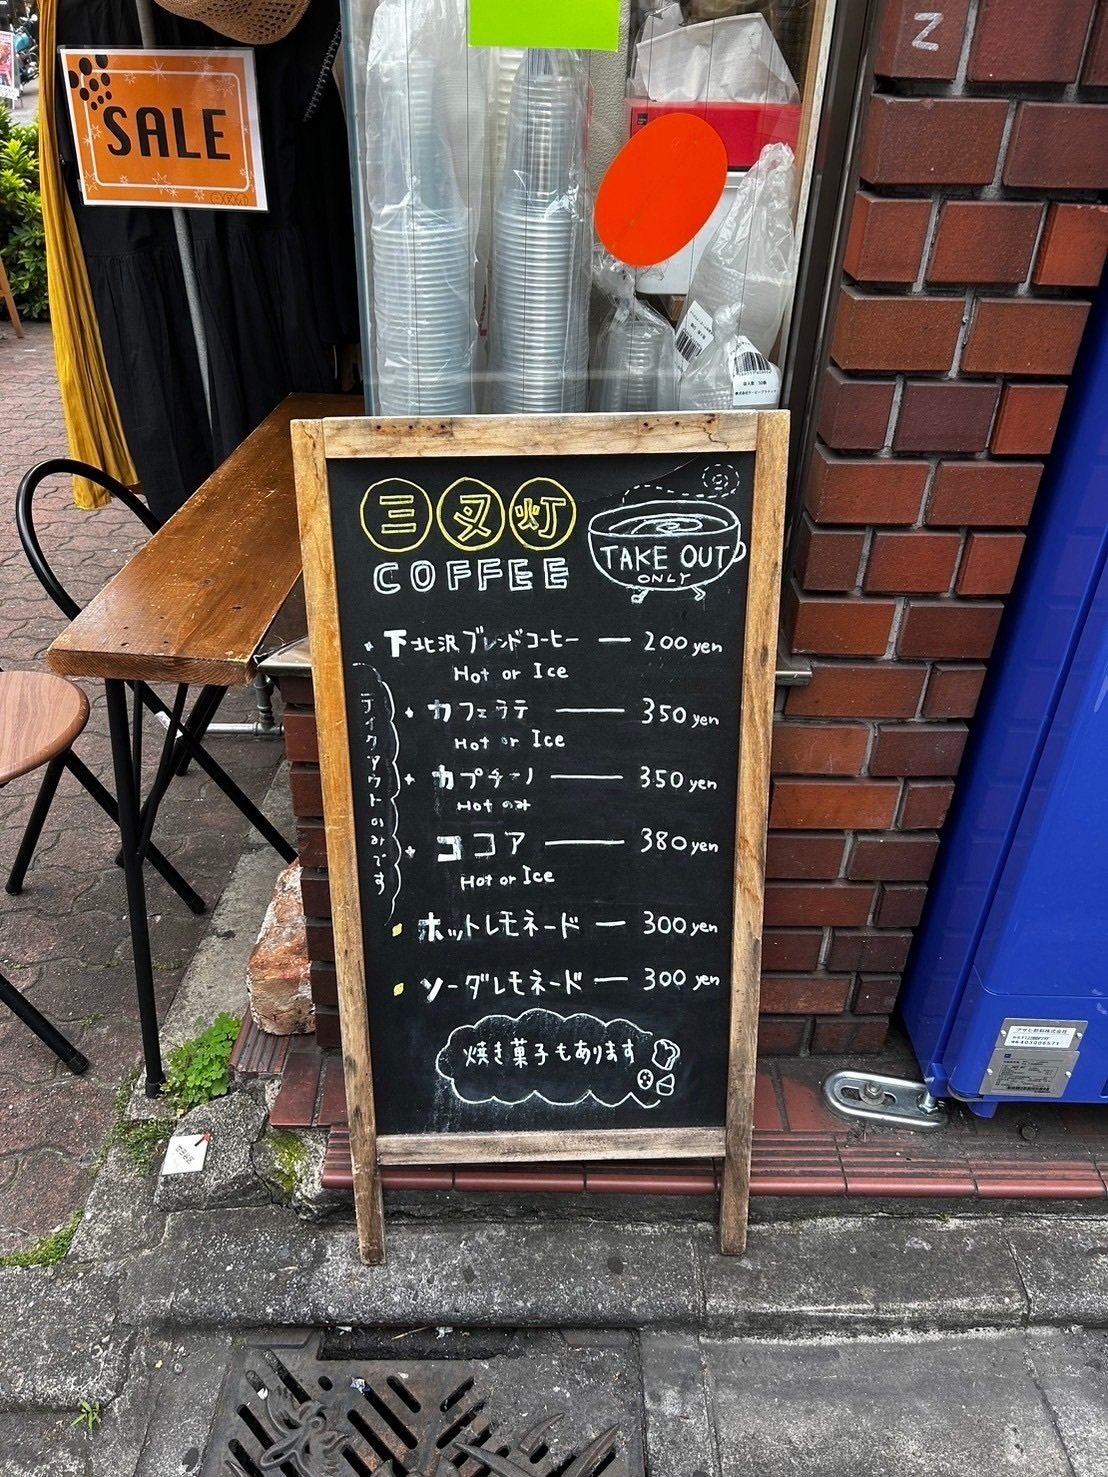 SALE
Z
三叉灯
COFFEE
TAKE OUT
ONLY
下北沢ブレンドコーヒー — 200 yen
Hot or Ice
カフェラテ — 350 yen
Hot or Ice
カプチーノ — 350 yen
Hot のみ
ココア — 380 yen
Hot or Ice
テイクアウトのみです
ホットレモネード — 300 yen
ソーダレモネード — 300 yen
焼き菓子もあります
アサヒ飲料株式会社